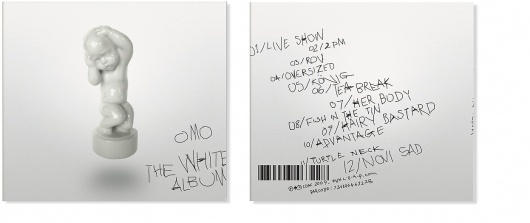 OMO
THE WHITE
ALBUM
01/LIVE SHOW
02/2PM
03/ROV
04/OVERSIZED
05/KÖNIG
06/TEA BREAK
07/HER BODY
08/FISH IN THE TIN
09/HAIRY BASTARD
10/ADVANTAGE
11/TURTLE NECK
12/NOVI SAD